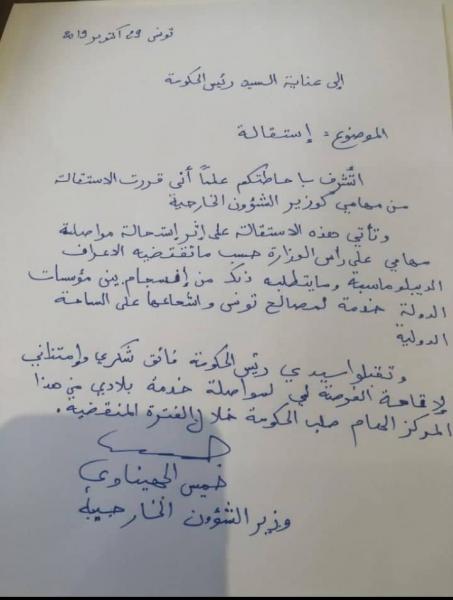 تونس 29 أكتوبر 2019
إلى عناية السيد رئيس الحكومة
الموضوع : إستقالة
اتشرف باحاطتكم علمًا أني قررت الاستقالة
من مهامي كوزير الشؤون الخارجية
وتأتي هذه الاستقالة على إثر إستحالة مواصلة
مهامي على رأس الوزارة حسب ماتقتضيه الاعراف
الديبلوماسية ومايتطلبه ذلك من إنسجام بين مؤسسات
الدولة خدمة لمصالح تونس واشعاعها على الساحة
الدولية
وتقبلوا سيدي رئيس الحكومة فائق شكري وإمتناني
لإتاحة الفرصة لي لمواصلة خدمة بلادي من هذا
المركز الهام صلب الحكومة خلال الفترة المنقضية.
خميس الجهيناوي
وزير الشؤون الخارجية